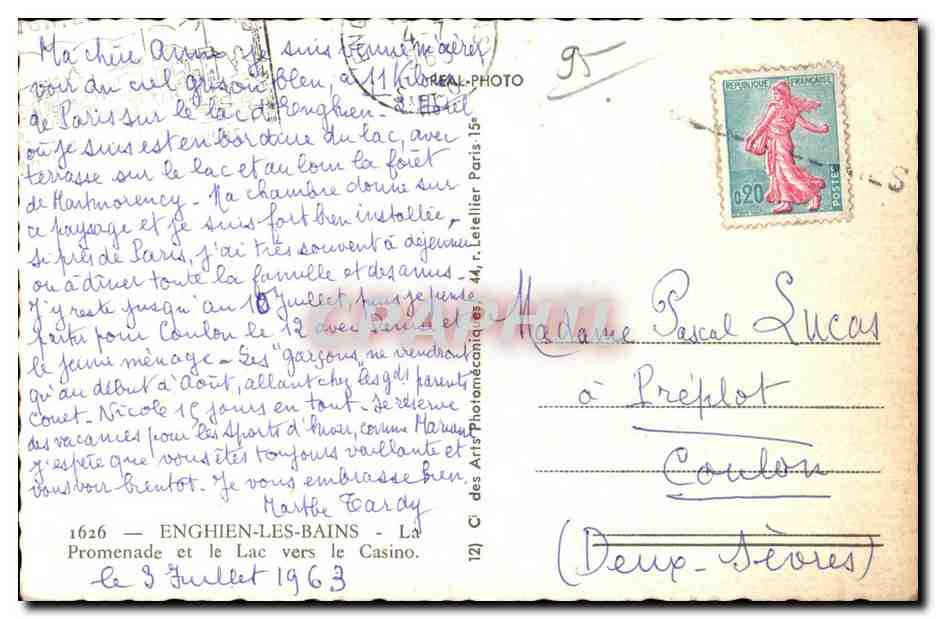 Ma chère Anna, je suis venue m'aérer,
voir du ciel gris ou bleu, à 11 kilom.
de Paris sur le lac d'Enghien. L'Hôtel
où je suis est en bordure du lac, avec
terrasse sur le lac et au loin la forêt
de Montmorency - Ma chambre donne sur
ce paysage et je suis fort bien installée,
si près de Paris, j'ai très souvent à déjeuner
ou à dîner toute la famille et des amis.
J'y reste jusqu'au 10 Juillet, puis je pense
partir pour Coulon le 12 avec et
le jeune ménage - Les "garçons" ne viendront
qu'au début d'Août, allant chez les gds parents
Couet - Nicole 15 jours en tout. Je réserve
des vacances pour les sports d'hiver, comme
J'espère que vous êtes toujours vaillante et
vous voir bientôt. Je vous embrasse bien
Marthe Tardy
1626 — ENGHIEN-LES-BAINS - La
Promenade et le Lac vers le Casino.
le 3 Juillet 1963
REAL-PHOTO
12) Ci des Arts Photomécaniques, 44, r. Letellier Paris-15e
95
REPUBLIQUE FRANÇAISE
0,20
POSTES
CPAPHIL
Madame Pascal Lucas
à Préplot
Coulon
(Deux-Sèvres)